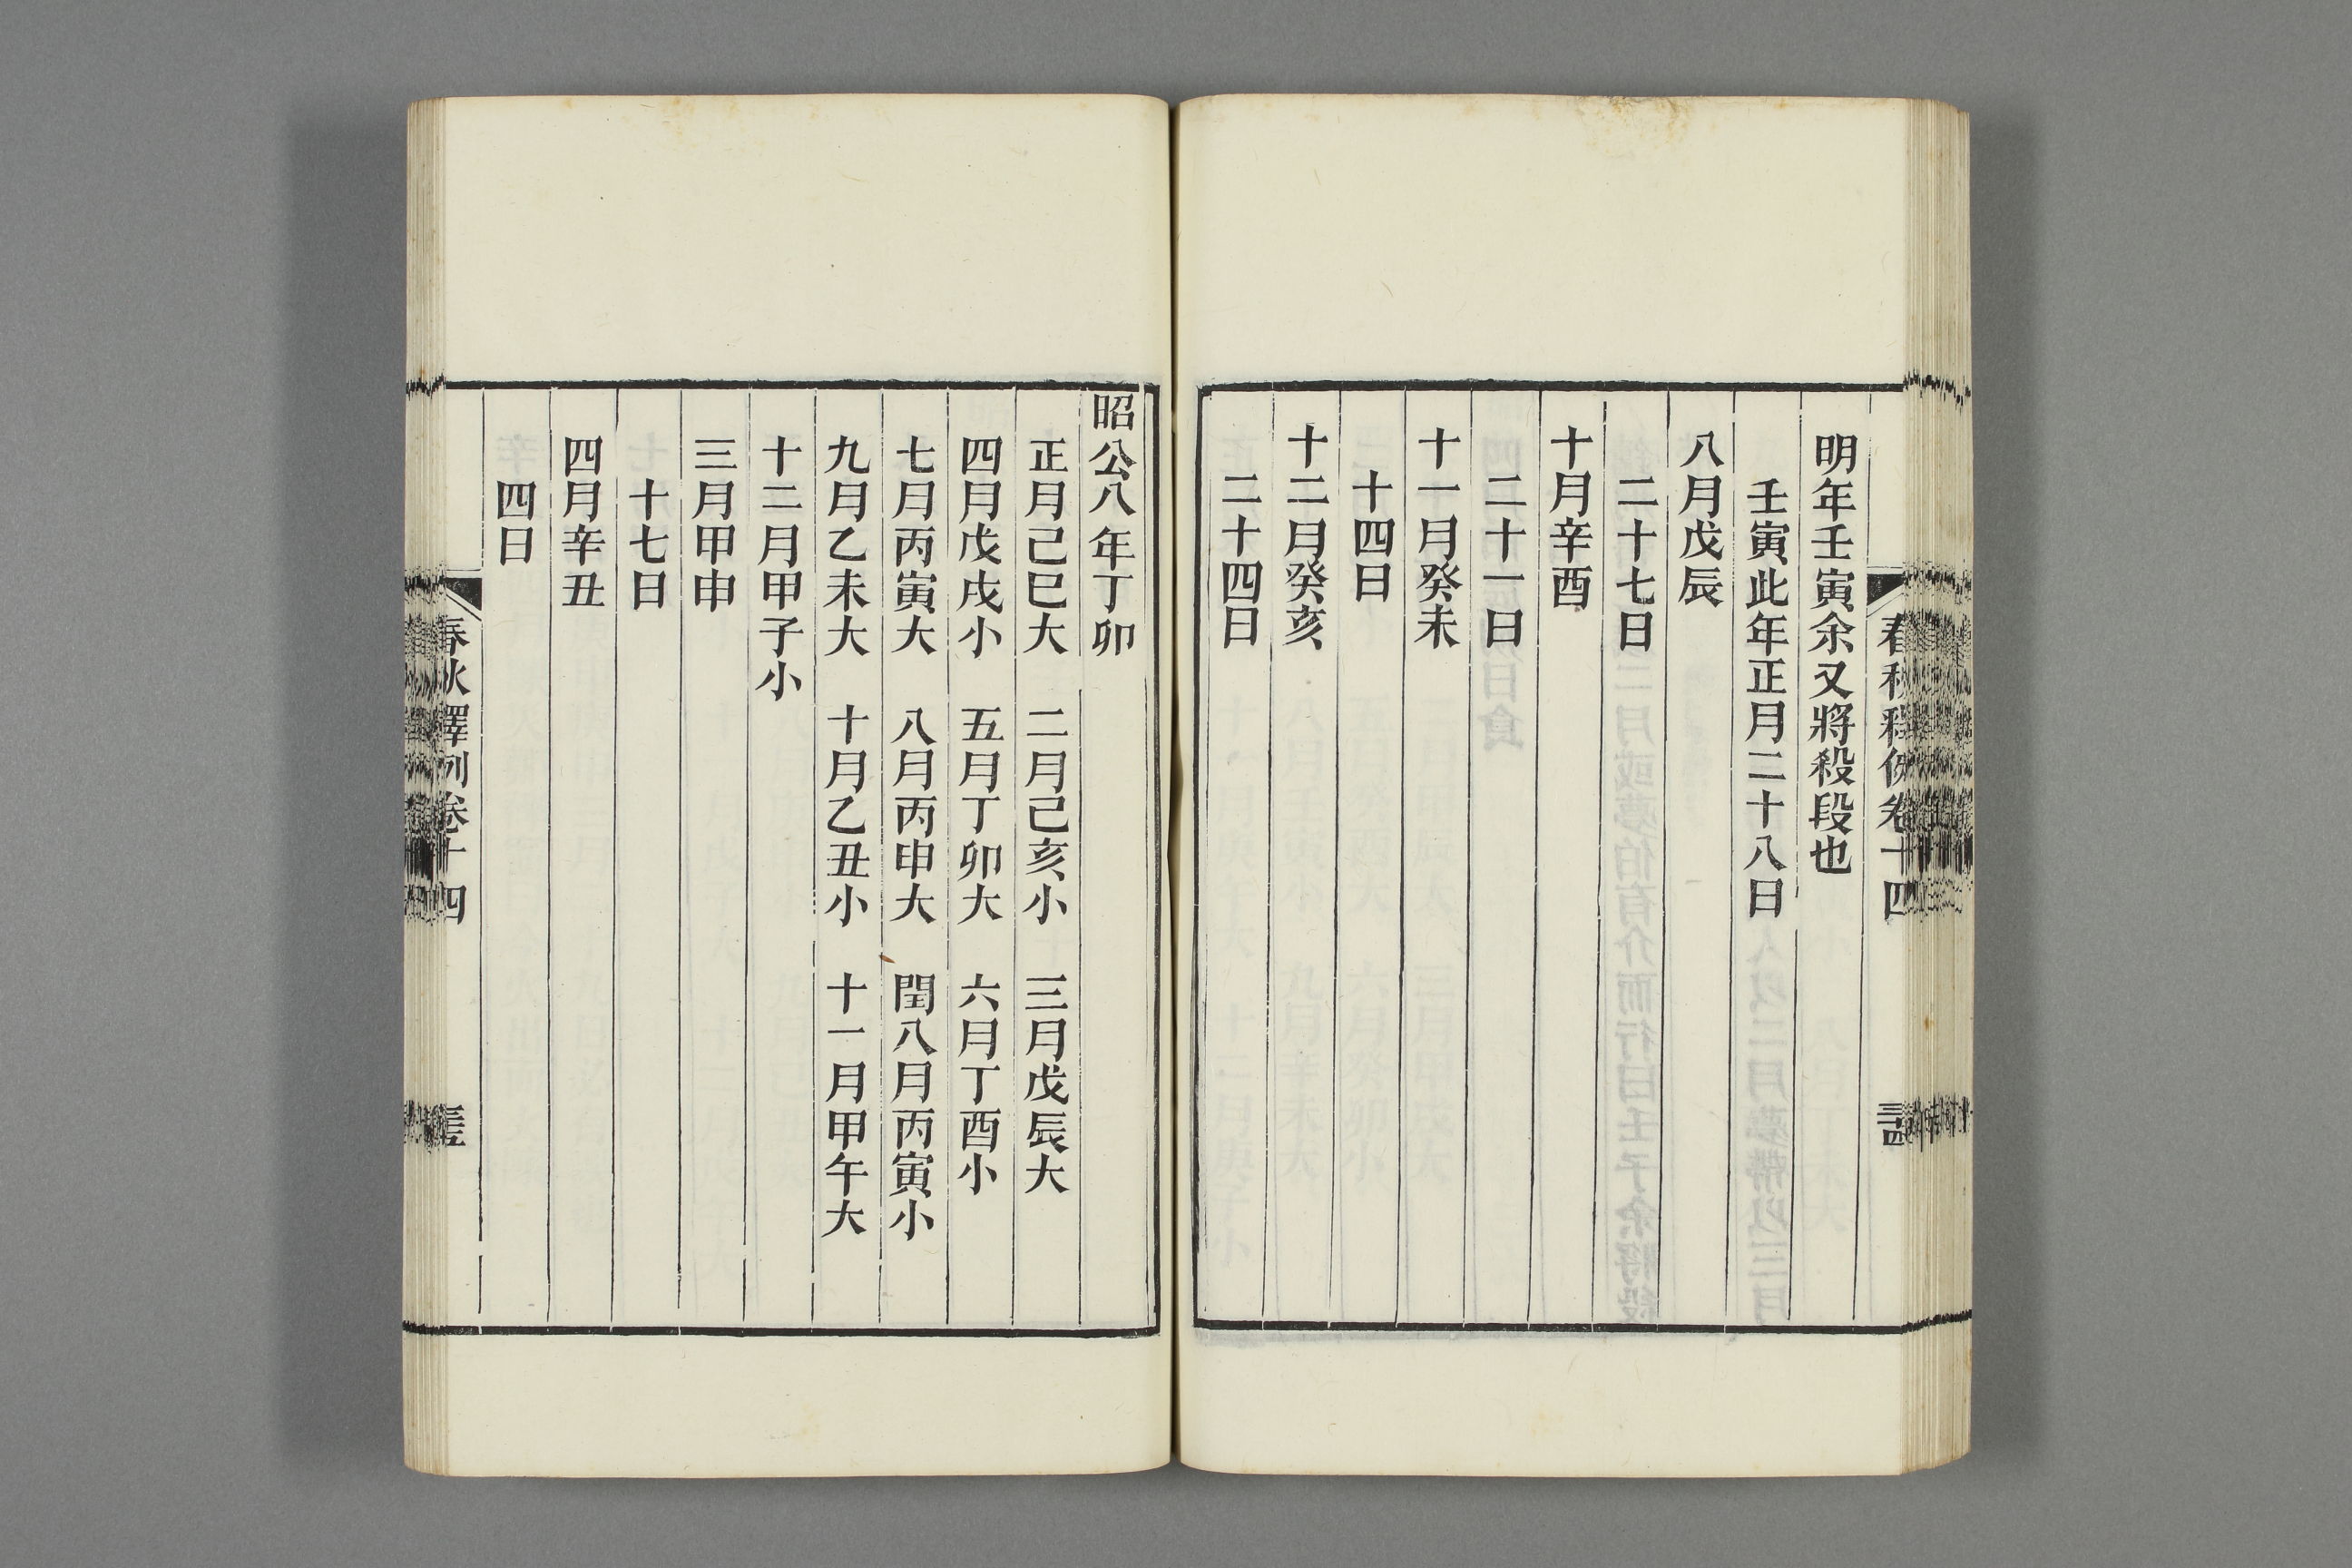 春秋釋例卷十四
三十四
明年壬寅余又將殺段也
壬寅此年正月二十八日
八月戊辰
二十七日
十月辛酉
二十一日
十一月癸未
十四日
十二月癸亥
二十四日
昭公八年丁卯
正月己巳大　二月己亥小　三月戊辰大
四月戊戌小　五月丁卯大　六月丁酉小
七月丙寅大　八月丙申大　閏八月丙寅小
九月乙未大　十月乙丑小　十一月甲午大
十二月甲子小
三月甲申
十七日
四月辛丑
四日
春秋釋例卷十四